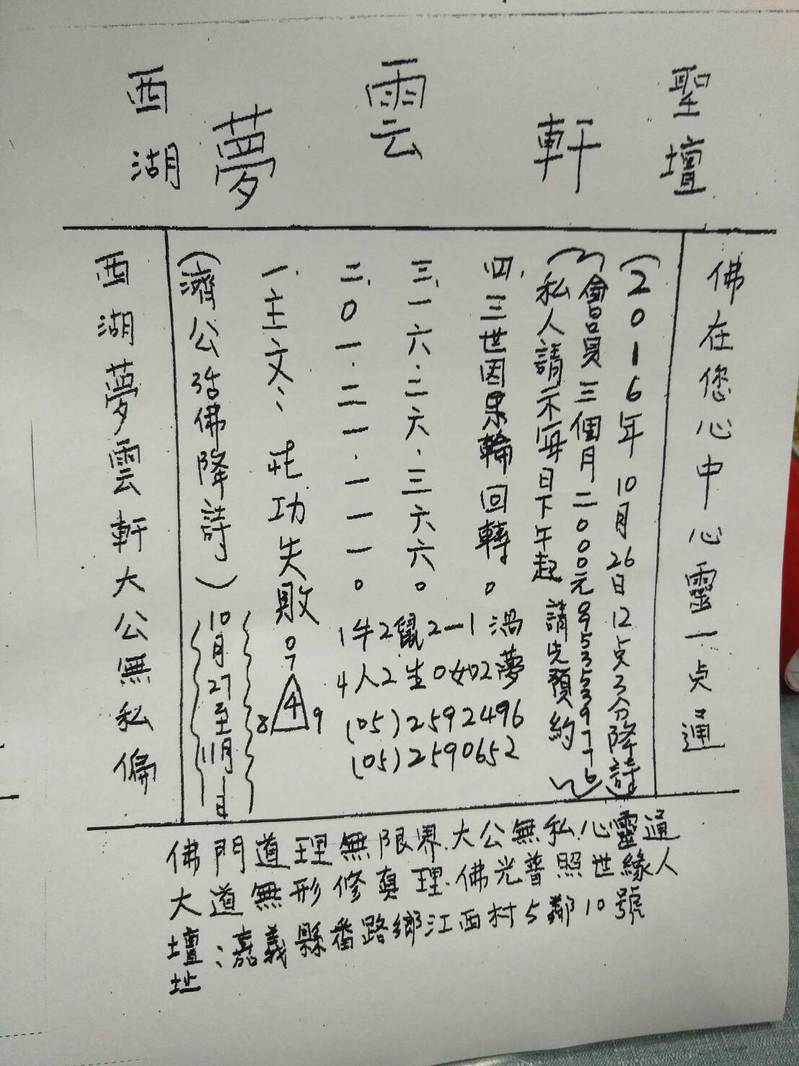 西湖夢雲軒聖壇
佛在您心中心靈一点通
(2016年10月26日12点3分降詩)
(會員三個月二000元0953539776)
私人請示每日下午起 請先預約
四,三世因果輪回轉。
三,一六.二六.三六六。
二,0一.二一.一一一。
一.主文:成功失敗。
(濟公活佛降詩)
10月27至11月1日
西湖夢雲軒大公無私偏
1牛2鼠2一1渦
4人2生0如2夢
(05)2592496
(05)2590652
7
4
8 9
佛門道理無限界.大公無私.心靈通
大道無形修真理.佛光普照世緣人
壇址:嘉義縣番路鄉江西村5鄰10號